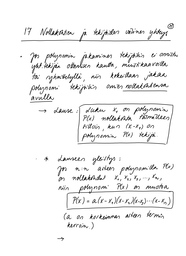 17 Nollakohtien ja tekijöiden välinen yhteys
• Jos polynomin jakaminen tekijöihin ei onnistu
yht. tekijän ottamisen kautta, muistikaavoilla
tai ryhmittelyllä, niin kokeillaan jakaa
polynomi tekijöihin sen nollakohtiensa
avulla.
→ Lause: Luku x₀ on polynomin
P(x) nollakohta täsmälleen
silloin, kun (x-x₀) on
P(x):n tekijä.
→ Lauseen yleistys:
Jos n:n asteen polynomilla P(x)
on nollakohdat x₁, x₂, x₃, ..., xₙ,
niin polynomi P(x) on muotoa
P(x) = a(x-x₁)(x-x₂)(x-x₃)...(x-xₙ)
(a on korkeimman asteen termin
kerroin)
→